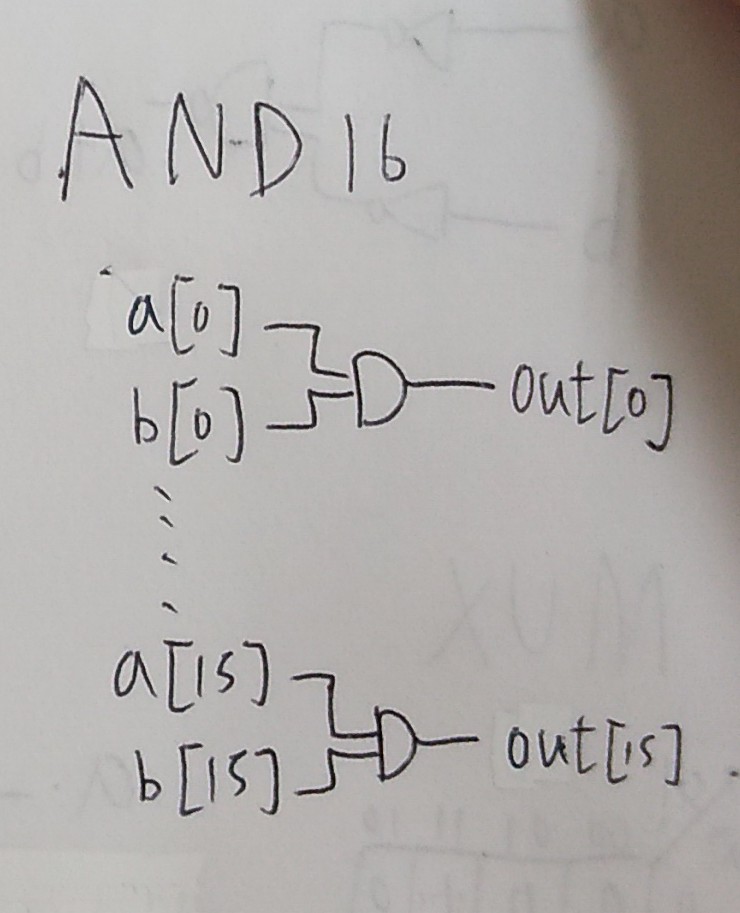 AND16
a[0]
b[0]
out[0]
a[15]
b[15]
out[15]